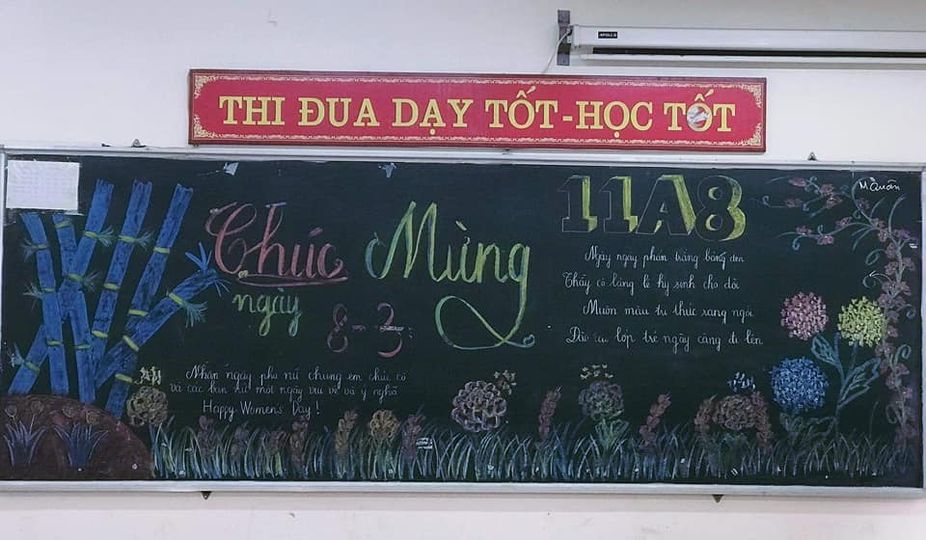 THI ĐUA DẠY TỐT-HỌC TỐT
Chúc Mừng
ngày
8-3
11A8
Ngày ngày phấn trắng bảng đen
Thầy cô lặng lẽ hy sinh cho đời
Muôn màu tri thức sáng ngời
Dìu lớp trẻ ngày càng đi lên
Nhân ngày phụ nữ chúng em chúc cô
và các bạn nữ một ngày vui vẻ và ý nghĩa
Happy Women's Day!